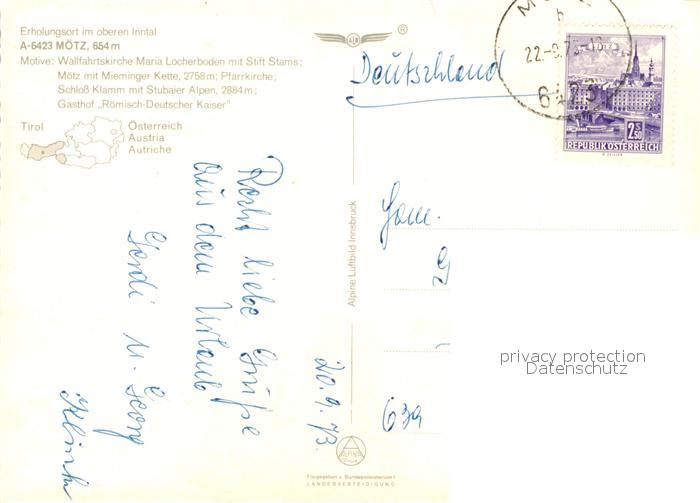 Erholungsort im oberen Inntal
A-6423 MÖTZ, 654 m
Motive: Wallfahrtskirche Maria Locherboden mit Stift Stams;
Mötz mit Mieminger Kette, 2758 m; Pfarrkirche;
Schloß Klamm mit Stubaier Alpen, 2884 m;
Gasthof „Römisch-Deutscher Kaiser"
Tirol
Österreich
Austria
Autriche
Deutschland
22.-9.73-18
6423
2.50
REPUBLIK ÖSTERREICH
Fam.
639
Alpine Luftbild Innsbruck
20.9.73
Recht liebe Grüße
aus dem Urlaub
Gerdi u. Georg
ALPINE
Freigegeben v. Bundesministerium f.
LANDESVERTEIDIGUNG
privacy protection
Datenschutz